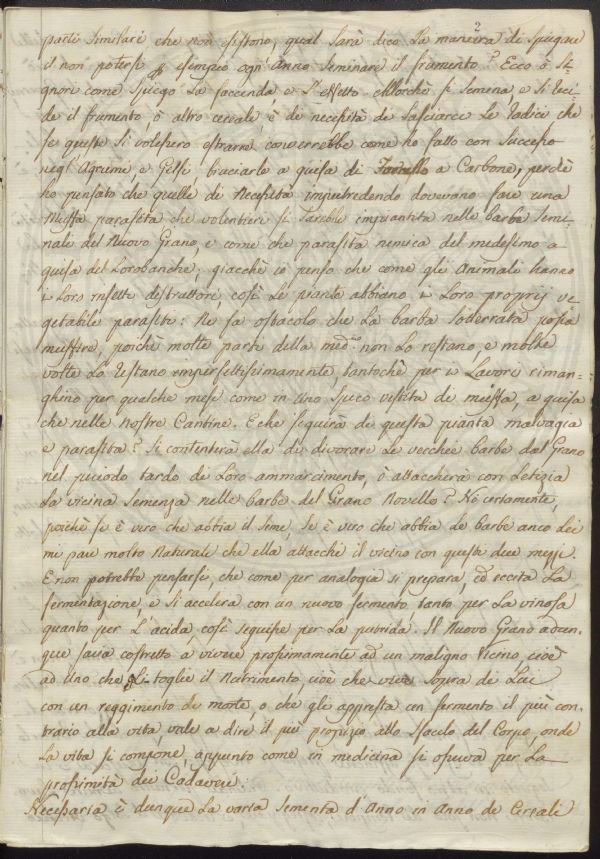 2
parti similari che non esistono, qual sarà dico la maniera di spiegare
il non potersi p. esempio ogn' Anno seminare il frumento? Ecco o Si-
gnori come spiego la faccenda, e l'effetto. Allorchè si semena, e si reci-
de il frumento, ò altro cereale, è di necessità di lasciarce le radici che
se queste si volessero estrarre converrebbe come ho fatto con successo
negl' Agrumi, e Gelsi bruciarle a guisa di a Carbone, perchè
ho pensato che quelle di Necessità imputredendo dovevano fare una
Muffa parasita che volentieri si sarebbe impiantata nelle barbe semi-
nale del Nuovo Grano, e come che parasita nemica del medesimo a
guisa del Lorobanche; giacchè io penso che come gli Animali hanno
i loro insetti distruttori, così le piante abbiano i Loro proprij ve-
getabile parasiti: Ne fa ostacolo che la barba sotterrata possa
muffire, poichè molte parti della med.ª non lo restano e molte
volte la restano imperfettissimamente, tantochè per i Lavori riman-
ghino per qualche mese come in uno speco vestita di muffa, a guisa
che nelle Nostre Cantine. E che seguirà di questa pianta malvagia
e parasita? Si contenterà ella di divorare le vecchie barbe dal Grano
nel periodo tardo di Loro ammarcimento, ò attaccherà con Letizia
la vicina semenza nelle barbe del Grano Novello? Nò certamente,
poichè se è vero che abbia il seme, se è vero che abbia de barbe anco lei
mi pare molto Naturale che ella attacchi il vicino con questi due mezzi.
E non potrebbe pensarsi, che come per analogia si prepara, ed eccita la
fermentazione, e si accelera con un nuovo fermento tanto per la vinosa
quanto per l'acida, così seguisse per la putrida. Il Nuovo Grano adun-
que saria costretto a vivere prossimamente ad un maligno Vicino, cioè
ad uno che gli toglie il Nutrimento, cioè che vive sopra di Lui
con un reggimento di morte, o che gli appresta un fermento il più con-
trario alla vita, vale a dire il più propizio allo sfacelo del Corpo, onde
la vita si compone, appunto come in medicina si osserva per la
prossimità dei Cadaveri.
Necessaria è dunque la varia sementa d'Anno in Anno de Cereali